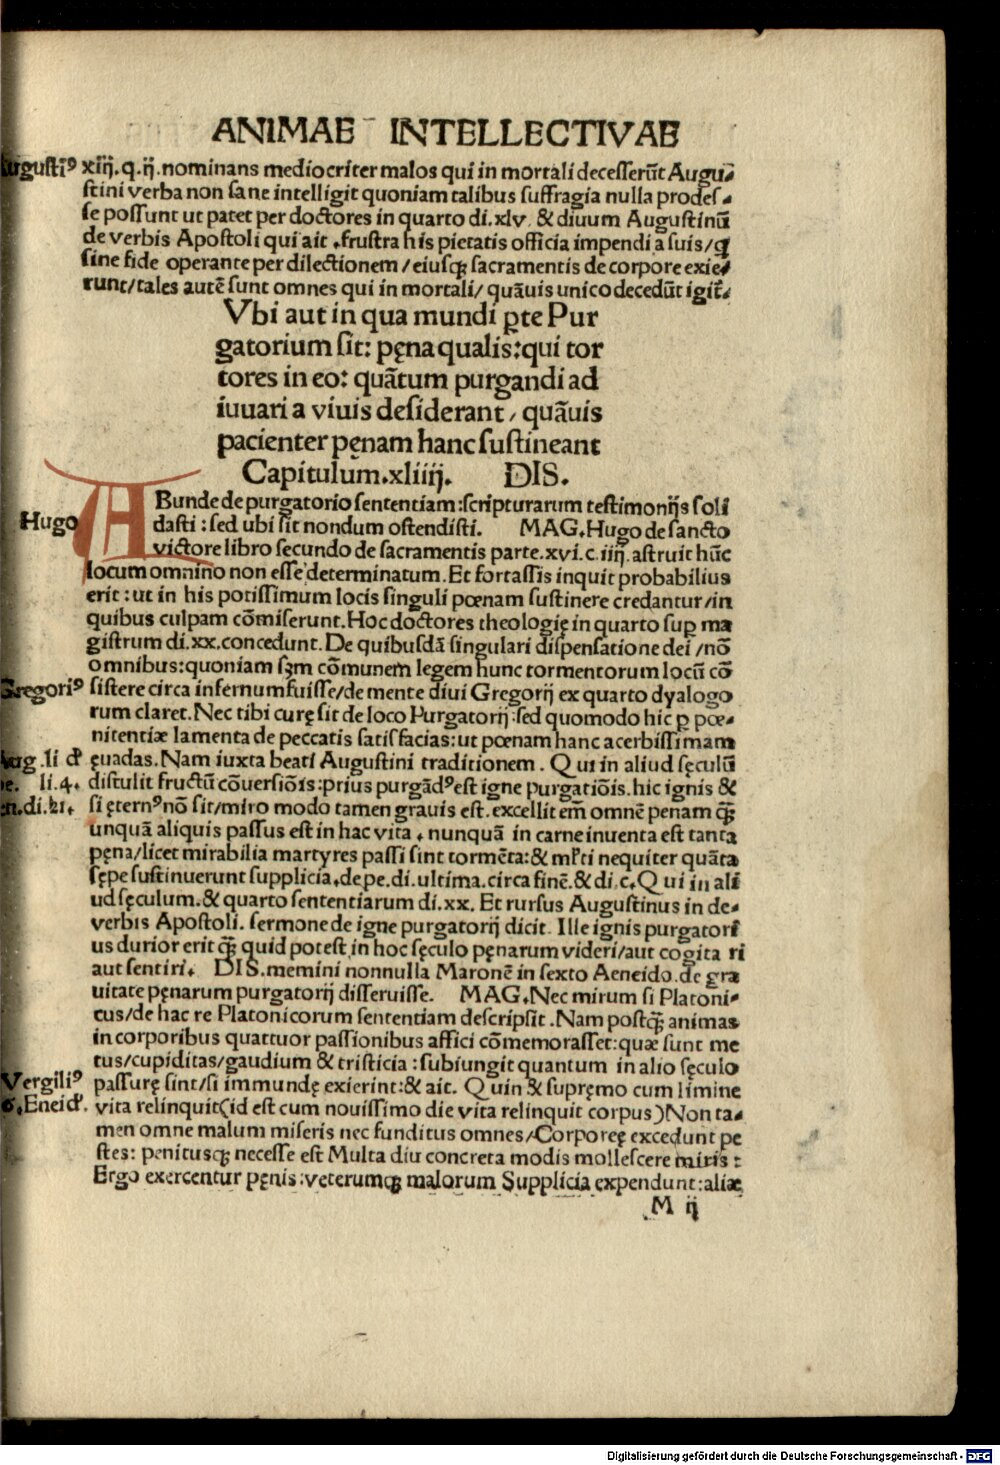 ANIMAE INTELLECTIVAE
Augustiꝰ xiij.q.ij.nominans mediocriter malos qui in mortali decesserūt Augu⸗
stini verba non sane intelligit quoniam talibus suffragia nulla prodes⸗
se possunt ut patet per doctores in quarto di.xlv. & diuum Augustinū
de verbis Apostoli qui ait .frustra his pietatis officia impendi a suis/q̄
sine fide operante per dilectionem/eiusqꝫ sacramentis de corpore exie⸗
runt/tales autē sunt omnes qui in mortali/quāuis unico decedūt igit̄.
Vbi aut in qua mundi ꝑte Pur
gatorium sit: pęna qualis:qui tor
tores in eo: quātum purgandi ad
iuuari a viuis desiderant/quāuis
pacienter pęnam hanc sustineant
Capitulum.xliiij. DIS.
ABunde de purgatorio sententiam:scripturarum testimonijs soli
Hugo dasti:sed ubi sit nondum ostendisti. MAG.Hugo de sancto
victore libro secundo de sacramentis parte.xvi.c.iiij.astruit hūc
locum omnino non esse determinatum.Et fortassis inquit probabilius
erit:ut in his potissimum locis singuli pœnam sustinere credantur/in
quibus culpam cōmiserunt.Hoc doctores theologię in quarto suꝑ ma
gistrum di.xx.concedunt.De quibusdā singulari dispensatione dei/nō
omnibus:quoniam sꝫm cōmunem legem hunc tormentorum locū cō
Gregoriꝰ sistere circa infernum fuisse/de mente diui Gregorij ex quarto dyalogo
rum claret.Nec tibi curę sit de loco Purgatorij:sed quomodo hic ꝑ pœ⸗
nitentiæ lamenta de peccatis satisfacias:ut pœnam hanc acerbissimam
Aug.li đ ęuadas.Nam iuxta beati Augustini traditionem. Qui in aliud sęculū
li.4. distulit fructū cōuersiōis:prius purgādꝰ est igne purgatiōis.hic ignis &
di.21. si ęternꝰ nō sit/miro modo tamen grauis est.excellit em̄ omnē penam qꝫ̄
unquā aliquis passus est in hac vita.nunquā in carne inuenta est tanta
pęna/licet mirabilia martyres passi sint tormēta:& mľti nequiter quāta
sępe sustinuerunt supplicia.de pe.di.ultima.circa finē.& di.c.Qui in ali
ud sęculum.& quarto sententiarum di.xx. Et rursus Augustinus in de⸗
verbis Apostoli. sermone de igne purgatorij dicit. Ille ignis purgatori
us durior erit qꝫ̄ quid potest in hoc sęculo pęnarum videri/aut cogita ri
aut sentiri. DIS.memini nonnulla Maronē in sexto Aeneido.de gra
uitate pęnarum purgatorij disseruisse. MAG.Nec mirum si Platoni⸗
cus/de hac re Platonicorum sententiam descripsit.Nam postqꝫ̄ animas
in corporibus quattuor passionibus affici cōmemorasset:quæ sunt me
tus/cupiditas/gaudium & tristicia:subiungit quantum in alio sęculo
Vergiliꝰ passurę sint/si immundę exierint:& ait. Quin & supręmo cum limine
6.Eneiđ. vita relinquit(id est cum nouissimo die vita relinquit corpus)Non ta⸗
men omne malum miseris nec funditus omnes/Corporeę excedunt pe
stes: penitusqꝫ necesse est Multa diu concreta modis mollescere miris:
Ergo exercentur pęnis:veterumqꝫ malorum Supplicia expendunt:aliæ
M ij
Digitalisierung gefördert durch die Deutsche Forschungsgemeinschaft - DFG